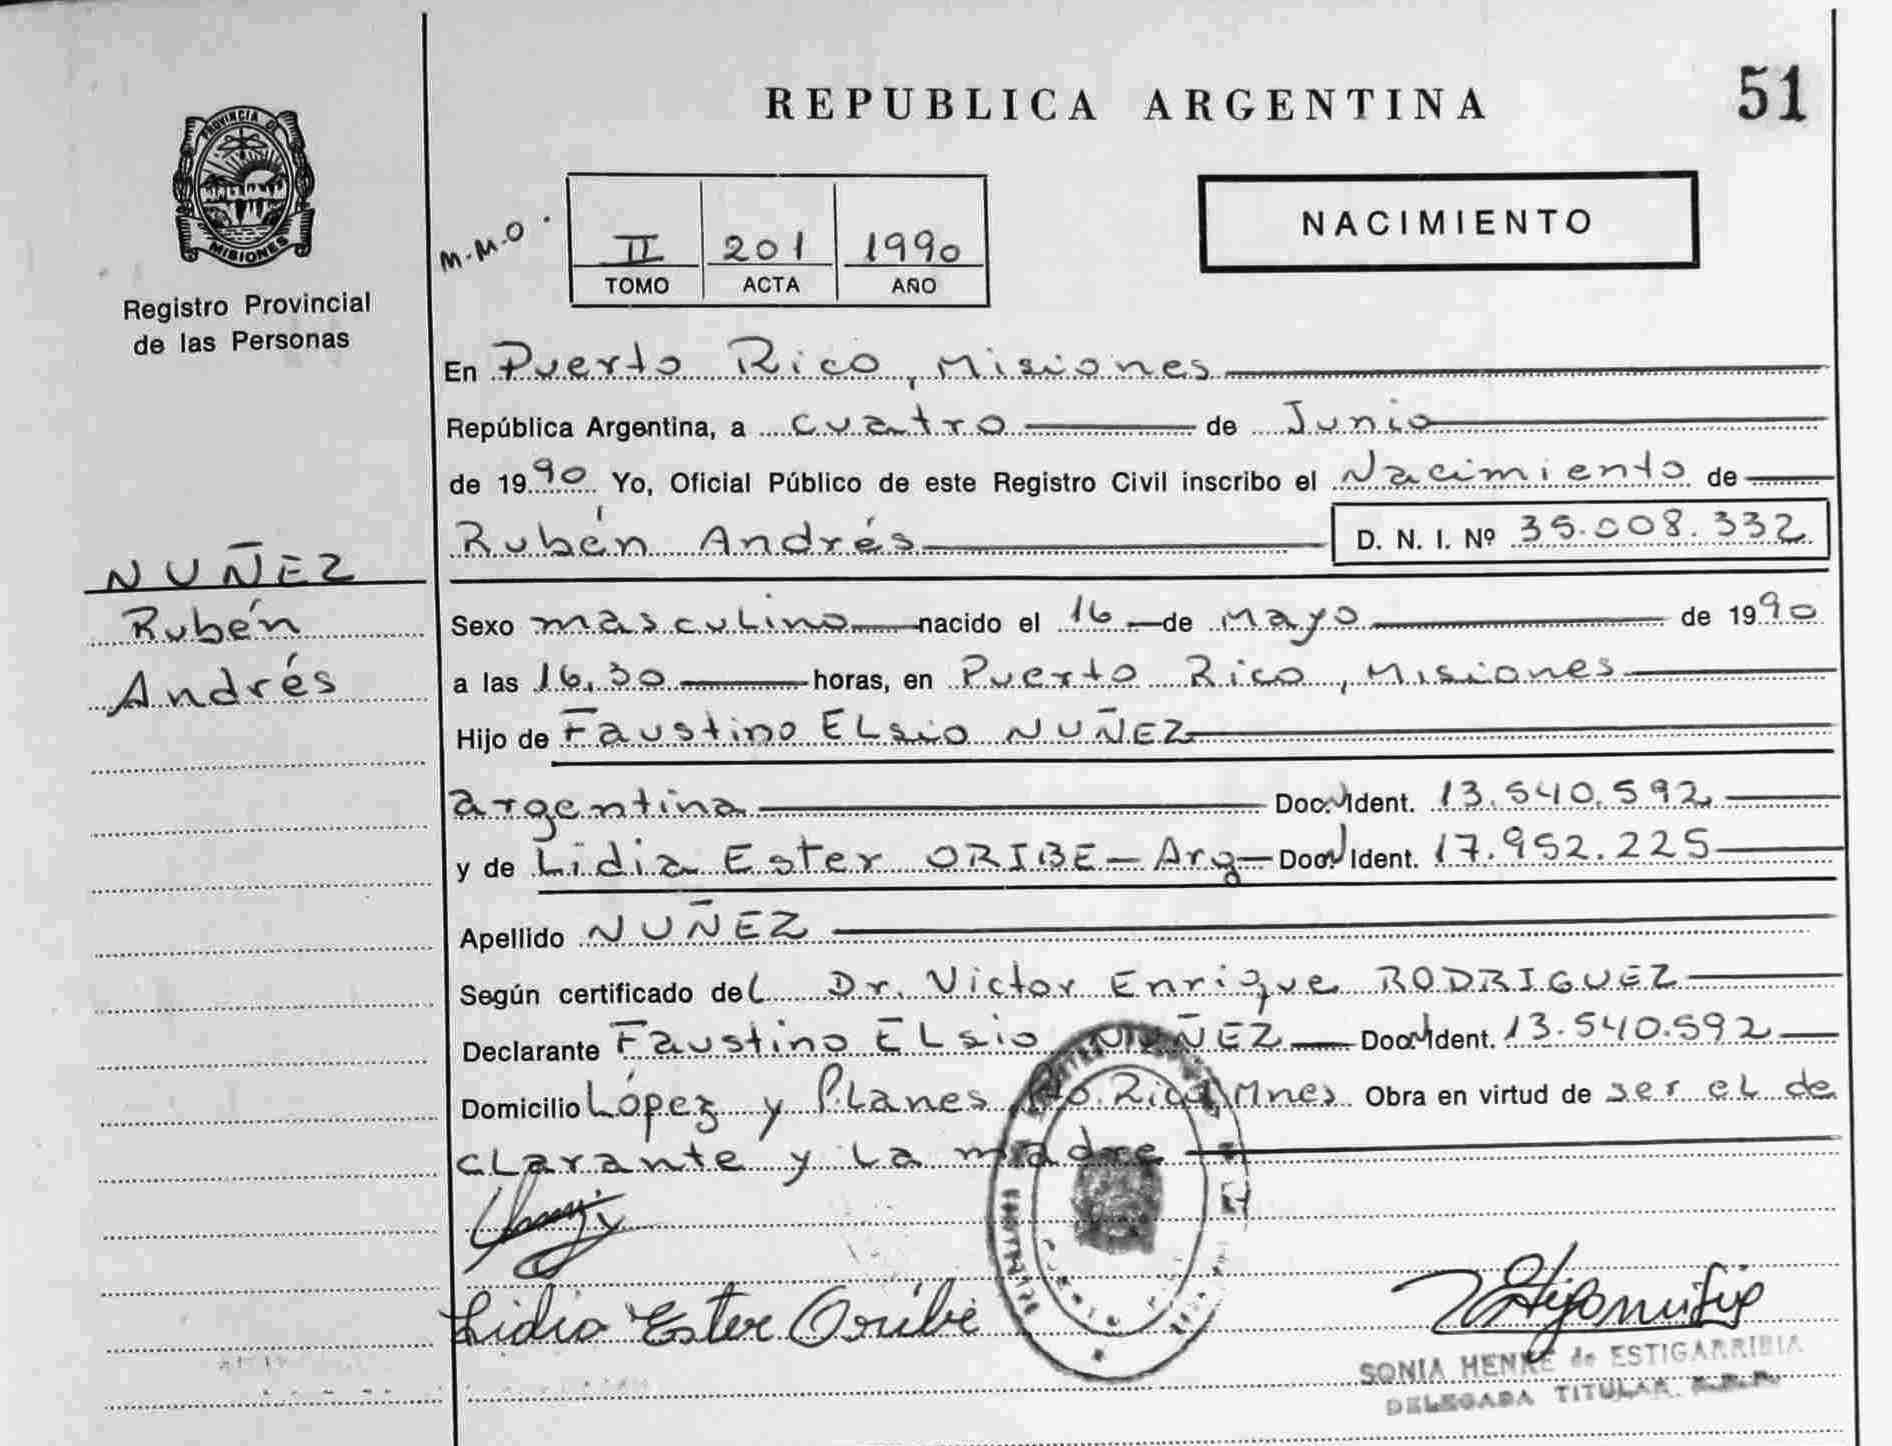 REPUBLICA ARGENTINA
51
PROVINCIA DE
MISIONES
Registro Provincial
de las Personas
M.M.O.
II 201 1990
TOMO ACTA AÑO
NACIMIENTO
En Puerto Rico, Misiones
República Argentina, a cuatro de Junio
de 1990 Yo, Oficial Público de este Registro Civil inscribo el Nacimiento de
Rubén Andrés D. N. I. Nº 35.008.332
NUÑEZ
Rubén
Andrés
Sexo masculino nacido el 16 de mayo de 1990
a las 16,30 horas, en Puerto Rico, Misiones
Hijo de Faustino ELsio NUÑEZ
argentina Doc. Ident. 13.540.592
y de Lidia Ester ORIBE - Arg- Doc. Ident. 17.952.225
Apellido NUÑEZ
Según certificado del Dr. Victor Enrique RODRIGUEZ
Declarante Faustino ELsio NUÑEZ Doc. Ident. 13.540.592
Domicilio López y Planes Pto. Rico, Mnes Obra en virtud de ser el de
clarante y la madre
Lidia Ester Oribe
SONIA HENKE de ESTIGARRIBIA
DELEGADA TITULAR